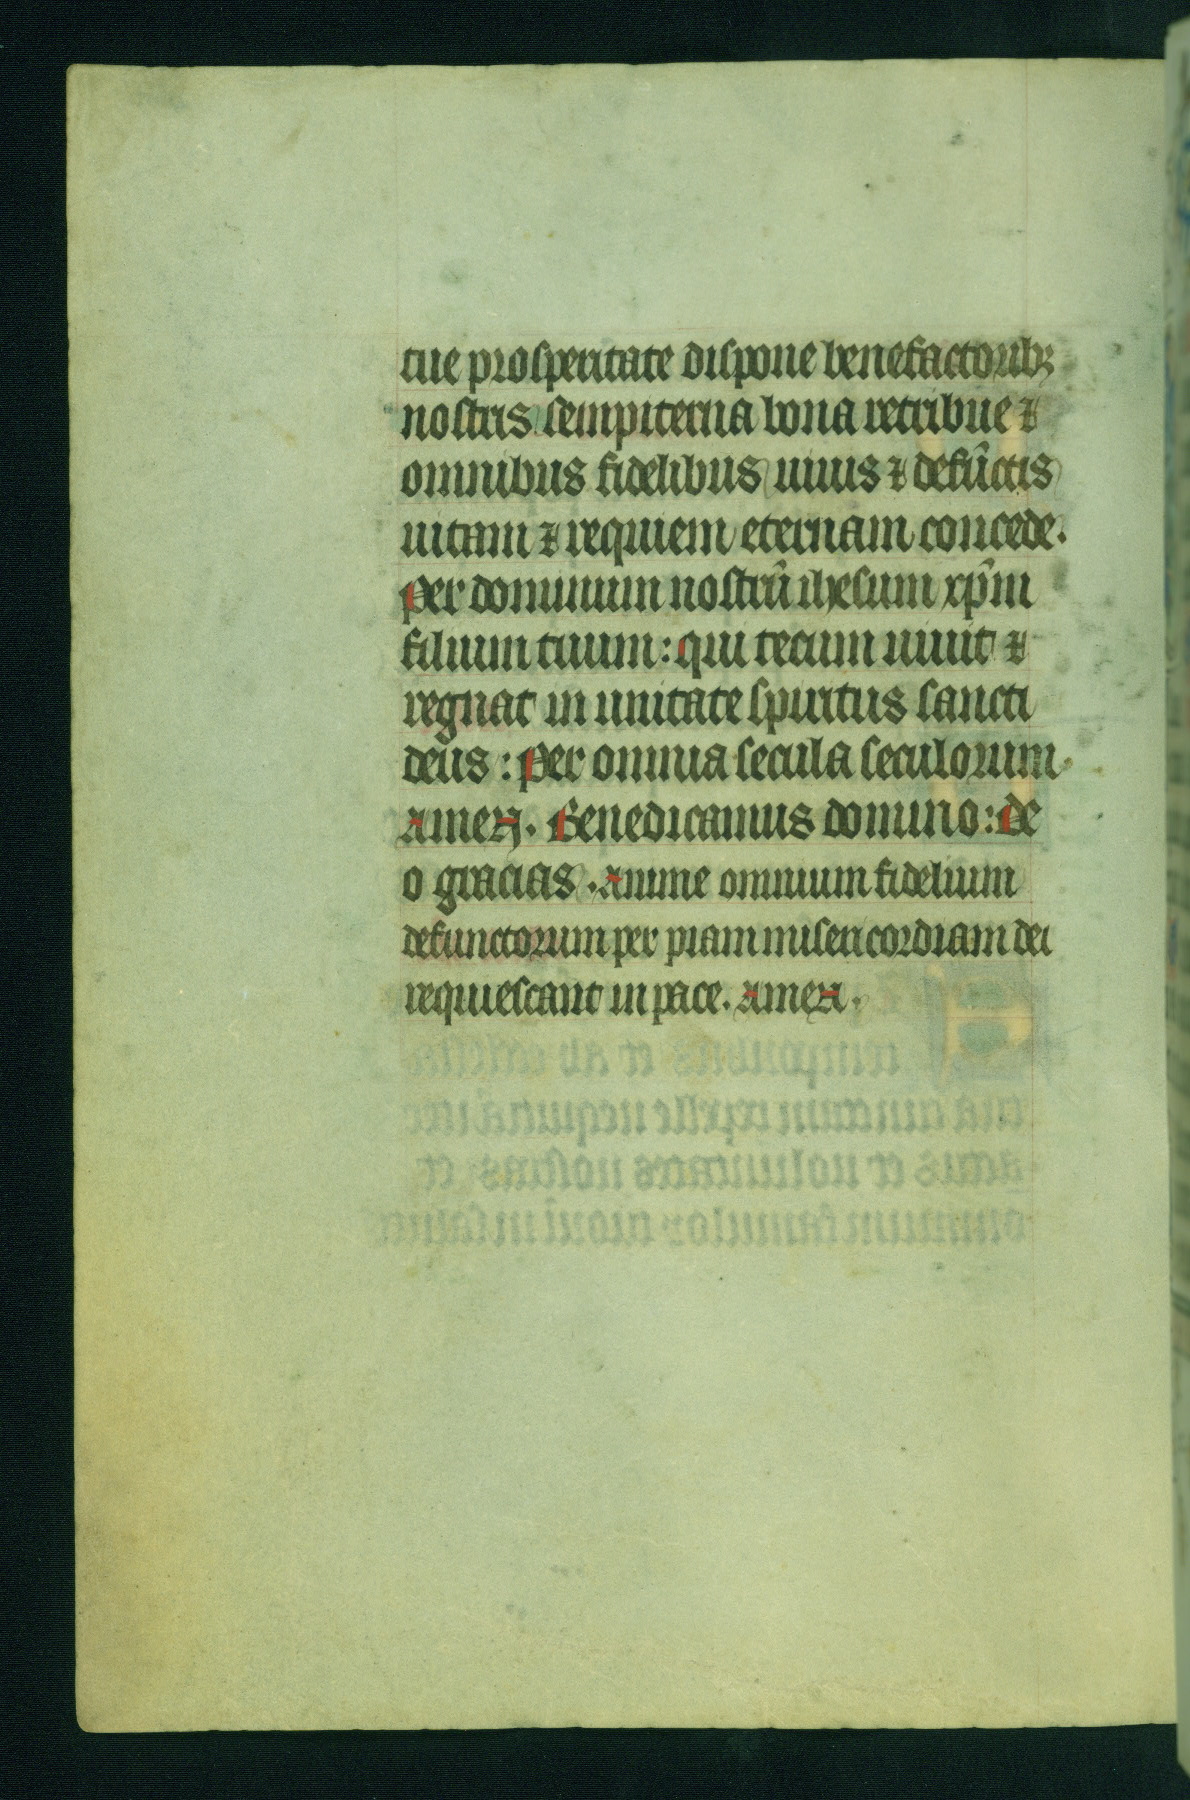 tue prosperitate dispone benefactoribꝫ
nostris sempiterna bona retribue ⁊
omnibus fidelibus uiuis ⁊ defūctis
uitam ⁊ requiem eternam concede.
Per dominum nostrū ihesum xp̄m
filium tuum: qui tecum uiuit ⁊
regnat in unitate spiritus sancti
deus: Per omnia secula seculorum.
Amen. Benedicamus domino: De
o gracias. Anime omnium fidelium
defunctorum per piam misericordiam dei
requiescant in pace. Amen.